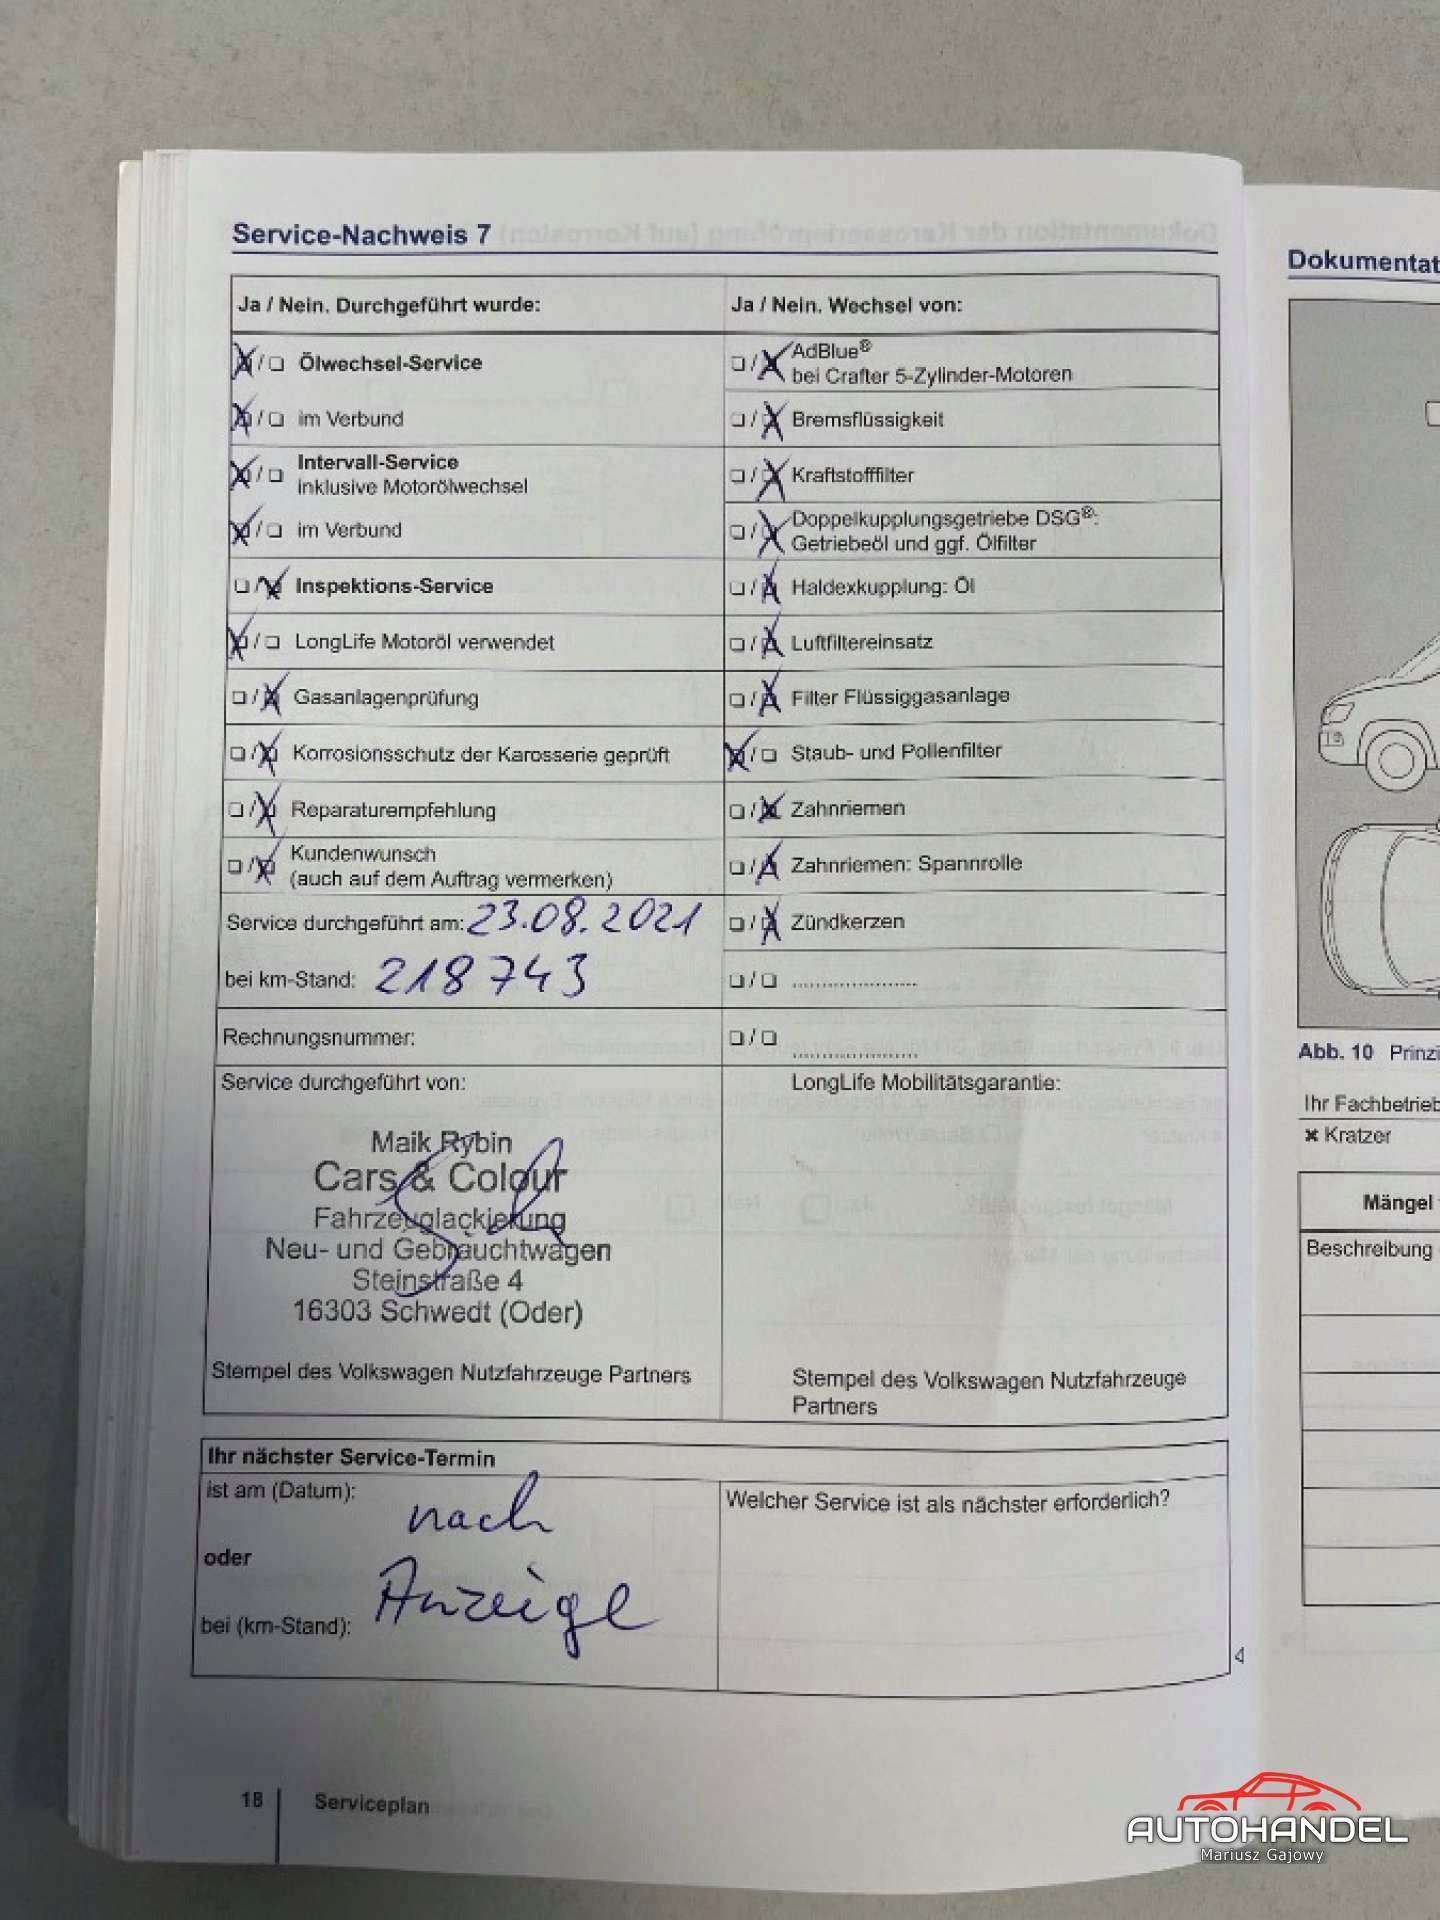 Service-Nachweis 7
Ja / Nein. Durchgeführt wurde:
Ölwechsel-Service
im Verbund
Intervall-Service
inklusive Motorölwechsel
im Verbund
Inspektions-Service
LongLife Motoröl verwendet
Gasanlagenprüfung
Korrosionsschutz der Karosserie geprüft
Reparaturempfehlung
Kundenwunsch
(auch auf dem Auftrag vermerken)
Service durchgeführt am: 23.08.2021
bei km-Stand: 218743
Rechnungsnummer:
Service durchgeführt von:
Maik Rybin
Cars & Colour
Fahrzeuglackierung
Neu- und Gebrauchtwagen
Steinstraße 4
16303 Schwedt (Oder)
Stempel des Volkswagen Nutzfahrzeuge Partners
Ja / Nein. Wechsel von:
AdBlue®
bei Crafter 5-Zylinder-Motoren
Bremsflüssigkeit
Kraftstofffilter
Doppelkupplungsgetriebe DSG®:
Getriebeöl und ggf. Ölfilter
Haldexkupplung: Öl
Luftfiltereinsatz
Filter Flüssiggasanlage
Staub- und Pollenfilter
Zahnriemen
Zahnriemen: Spannrolle
Zündkerzen
LongLife Mobilitätsgarantie:
Stempel des Volkswagen Nutzfahrzeuge
Partners
Ihr nächster Service-Termin
ist am (Datum):
nach
oder
Anzeige
bei (km-Stand):
Welcher Service ist als nächster erforderlich?
18 Serviceplan
Dokumentat
Abb. 10 Prinzi
Ihr Fachbetrieb
✖ Kratzer
Mängel
Beschreibung
AUTOHANDEL
Mariusz Gajowy